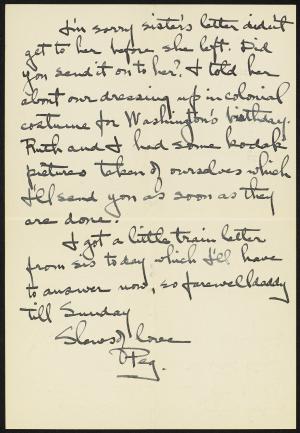 I'm sorry sister's letter didn't
get to her before she left. Did
you send it on to her? I told her
about our dressing up in colonial
costume for Washington's birthday.
Ruth and I had some kodak
pictures taken of ourselves which
I'll send you as soon as they
are done.
I got a little train letter
from sis today which I'll have
to answer now, so farewell daddy
till Sunday
Slews of love
Peg.